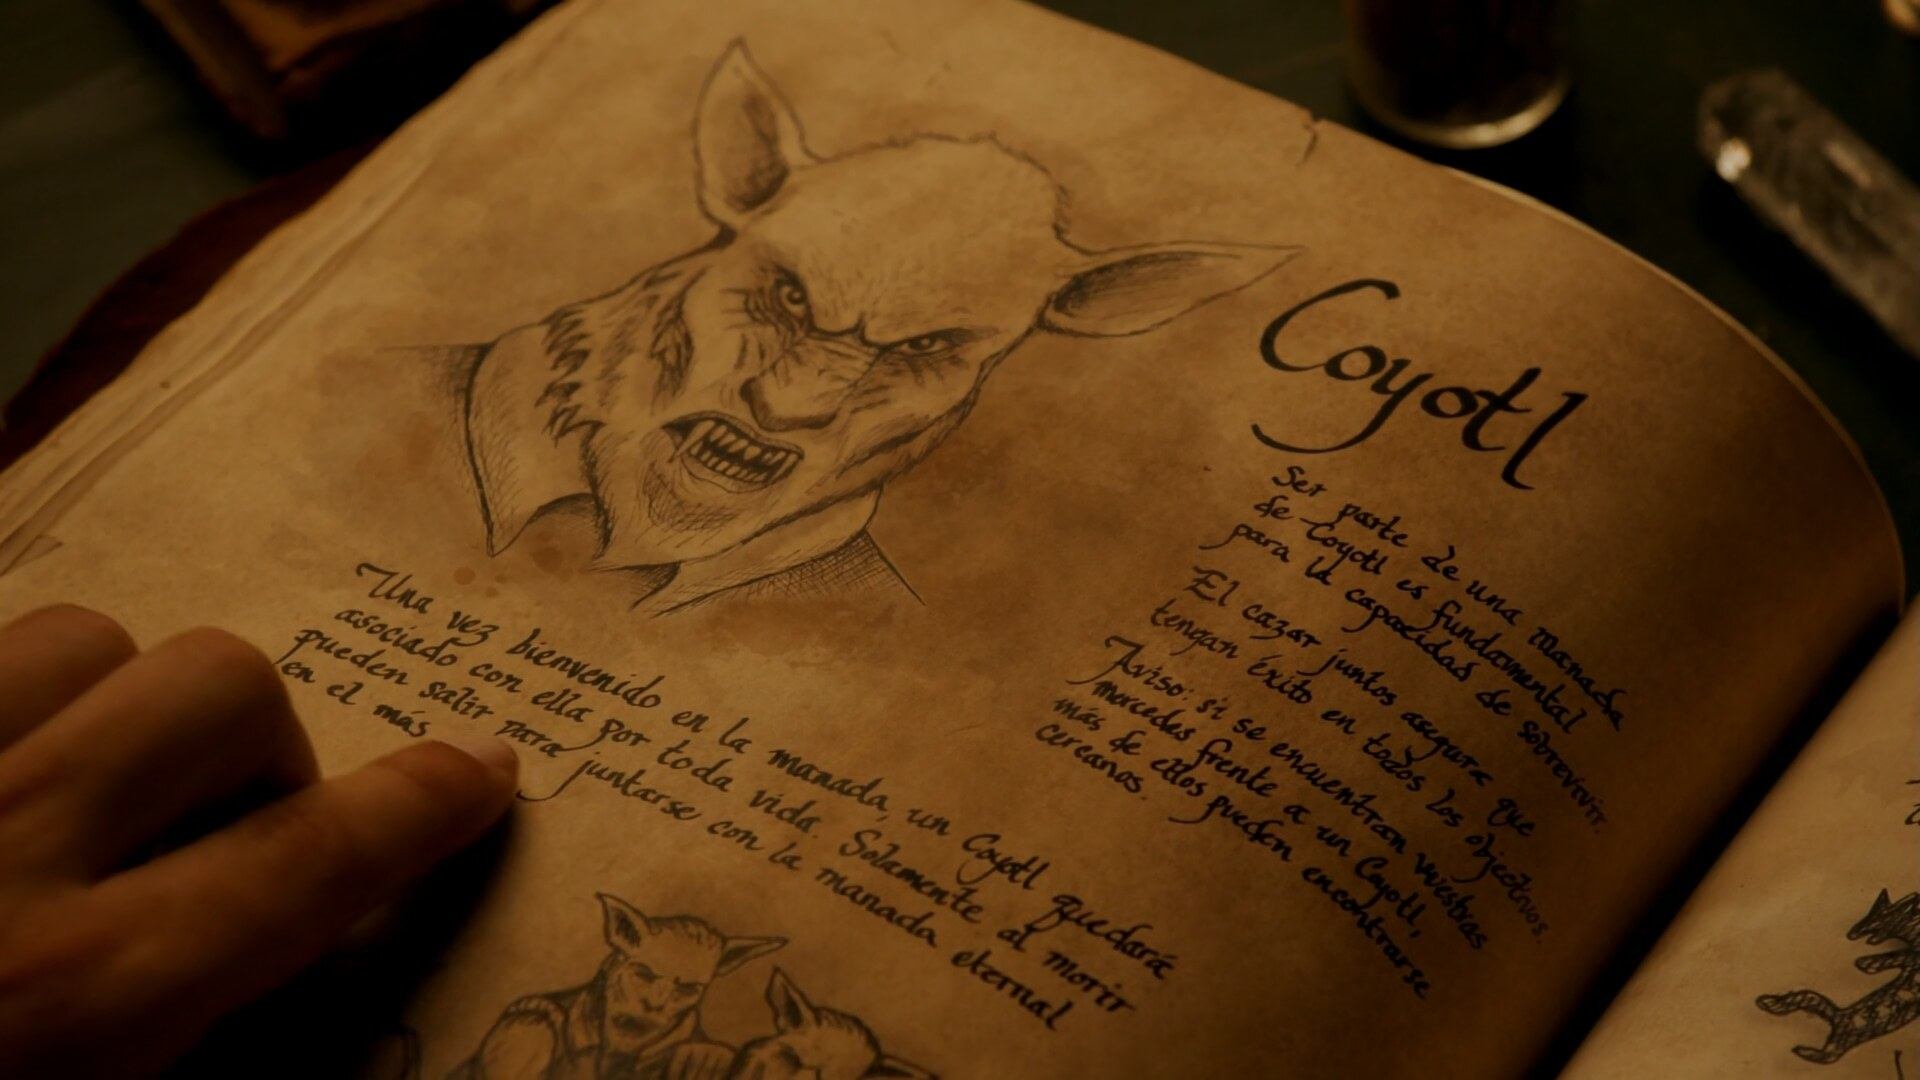 Coyotl
Ser parte de una manada
de Coyotl es fundamental
para la capacidad de sobrevivir.
El cazar juntos asegura que
tengan éxito en todos los objectivos.
Aviso: si se encuentran vuestras
mercedes frente a un Coyotl,
más de ellos pueden encontrarse
cercanos.
Una vez bienvenido en la manada, un Coyotl quedará
asociado con ella por toda vida. Solamente al morir
pueden salir para juntarse con la manada eternal
en el más